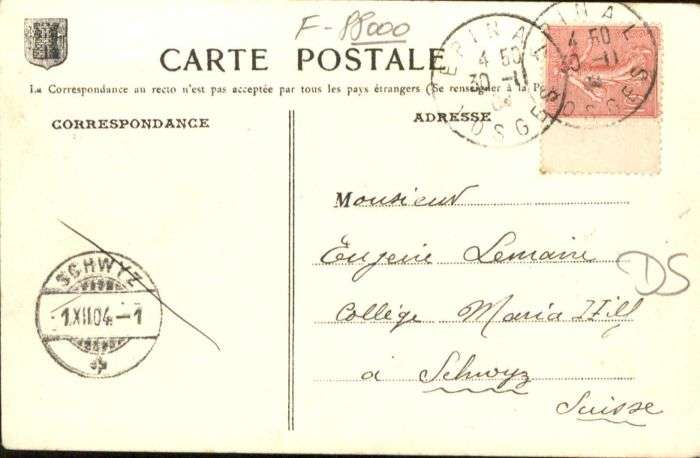 F-88000
CARTE POSTALE
La Correspondance au recto n'est pas acceptée par tous les pays étrangers (Se renseigner à la P
CORRESPONDANCE
ADRESSE
EPINAL
4 50
30 -11
VOSGES
EPINAL
4 50
30 -11
VOSGES
Monsieur
Eugène Lemaire
Collège Maria Hilf
à Schwyz
Suisse
DS
SCHWYZ
1.XII.04.-1